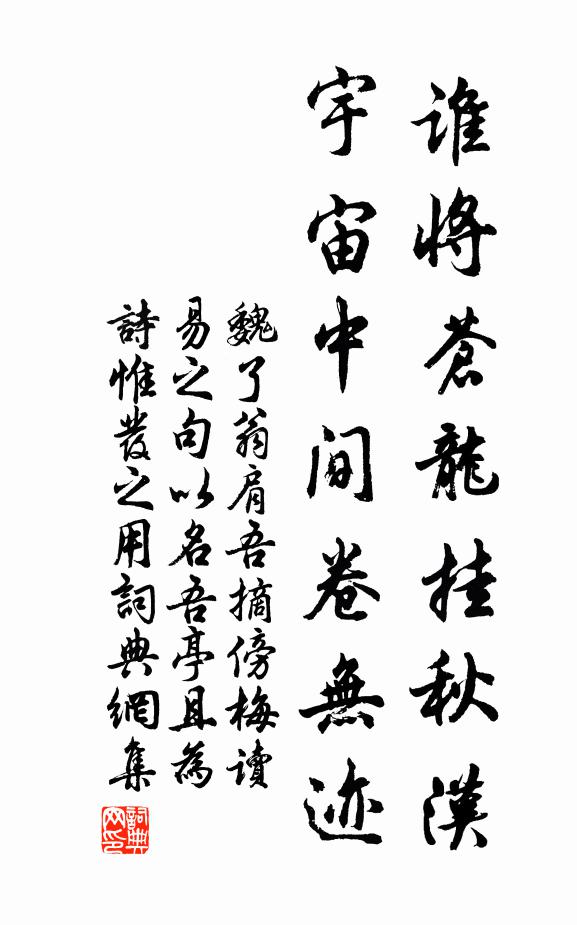 谁將蒼龍挂秋漢
宇宙中间卷無迹
魏了翁肩吾摘傍梅读
易之句以名吾亭且為
詩惟發之用詞典網集
詞典网印